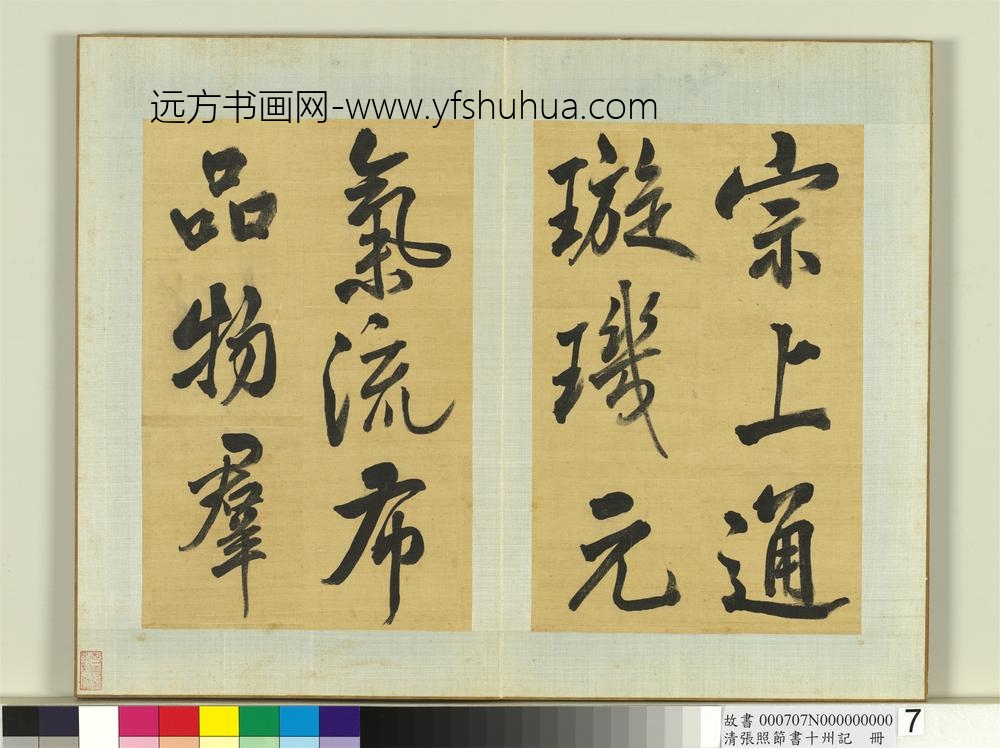 远方书画网-www.yfshuhua.com
宗上通
璇璣元
氣流布
品物羣
故書 000707N000000000
清張照節書十州記 冊
7